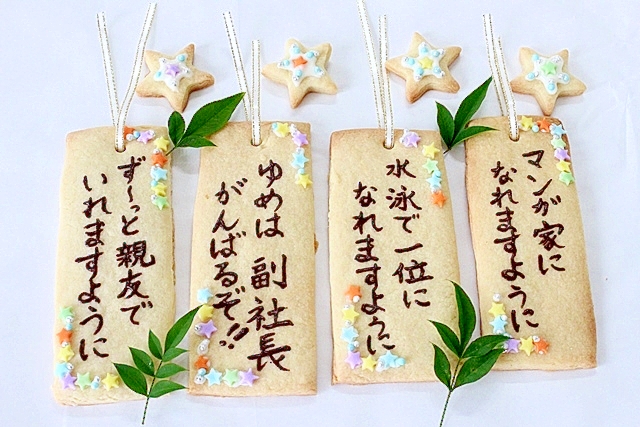 マンが家に
なれますように
水泳で一位に
なれますように
ゆめは副社長
がんばるぞ!!
ず〜っと親友で
いれますように